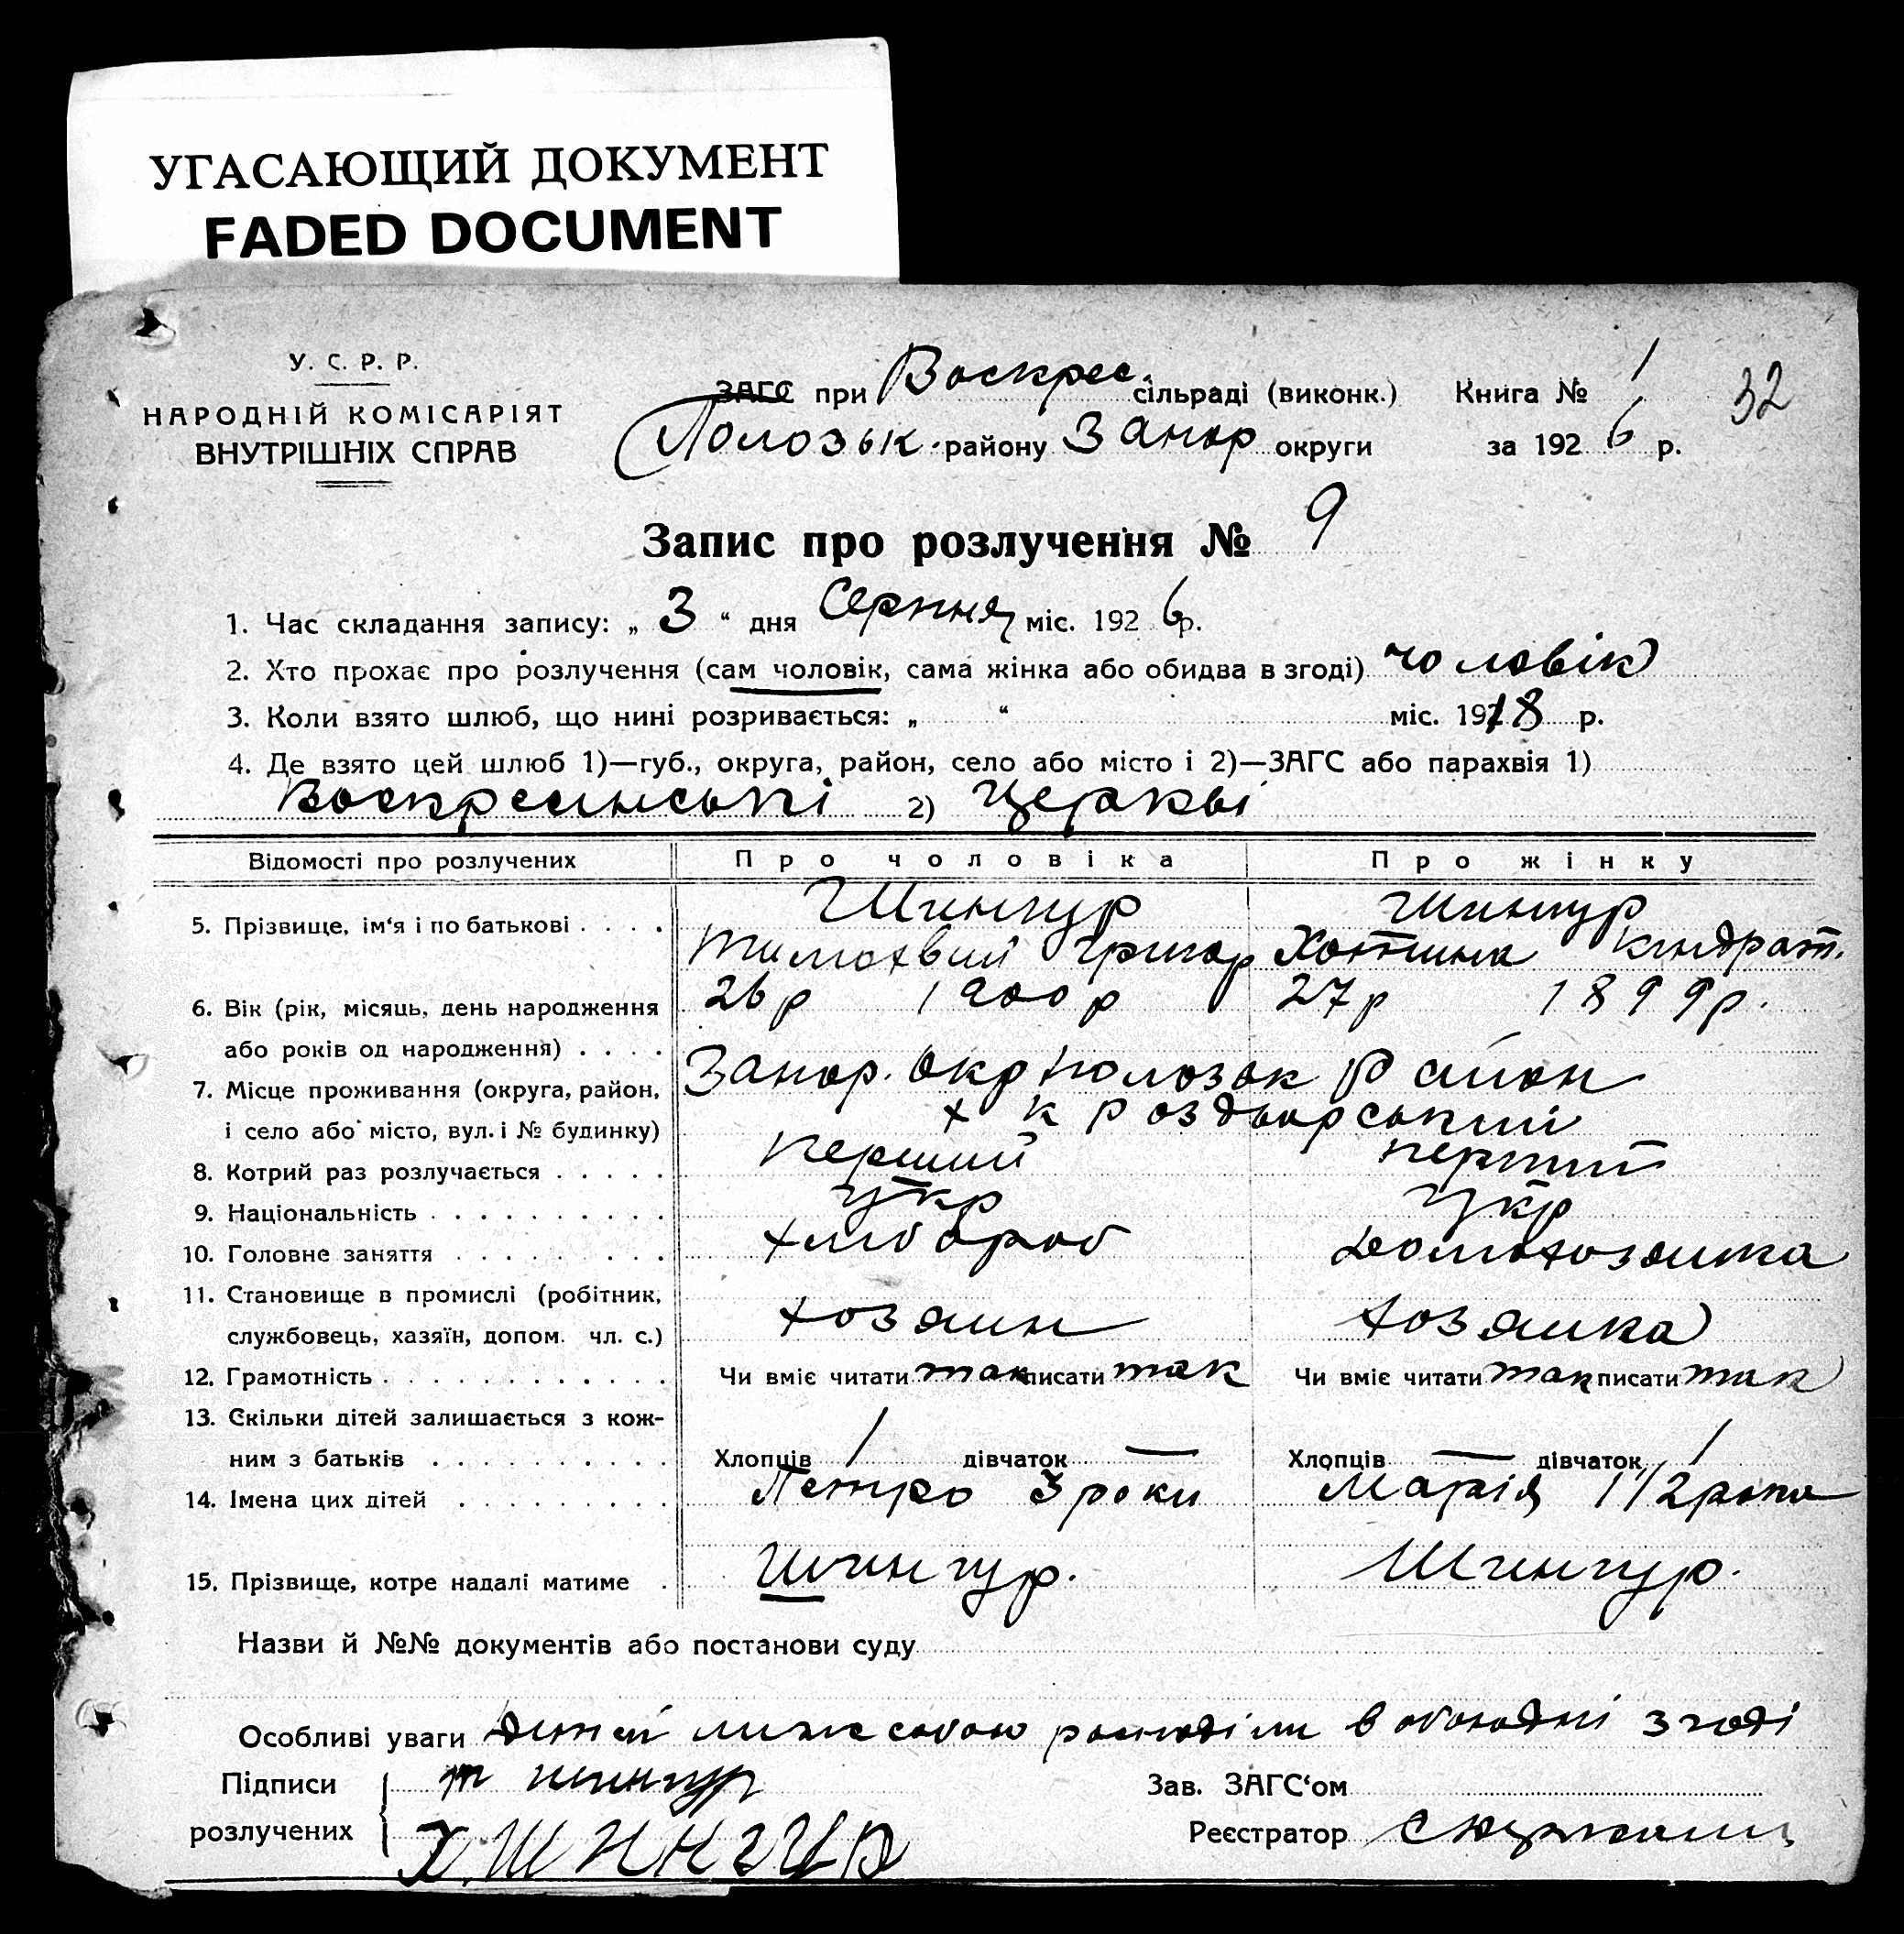 УГАСАЮЩИЙ ДОКУМЕНТ
FADED DOCUMENT
У. С. Р. Р.
НАРОДНІЙ КОМІСАРІЯТ
ВНУТРІШНІХ СПРАВ
ЗАГС при Воскрес. сільраді (виконк.)
Полозьк. району Запор округи
Книга № 1
за 1926 р.
32
Запис про розлучення № 9
1. Час складання запису: „ 3 “ дня Серпня міс. 1926 р.
2. Хто прохає про розлучення (сам чоловік, сама жінка або обидва в згоді) чоловік
3. Коли взято шлюб, що нині розривається: „ “ міс. 1918 р.
4. Де взято цей шлюб 1)—губ., округа, район, село або місто і 2)—ЗАГС або парахвія 1)
Воскресинські 2) церкві
Відомості про розлучених Про чоловіка Про жінку
5. Прізвище, ім‘я і по батькові . . . . Шингур Шингур
Тимохвий Григор Хотина Кіндрат.
6. Вік (рік, місяць, день народження 26 р 1900 р 27 р 1899 р.
або років од народження) . . . .
7. Місце проживання (округа, район, Запор. окр Полозьк Район
і село або місто, вул. і № будинку) х к Роздворський
8. Котрий раз розлучається . . . . . Перший перший
9. Національність . . . . . . . . . . Укр Укр
10. Головне заняття . . . . . . . . . хлибороб Домохозяйка
11. Становище в промислі (робітник,
службовець, хазяїн, допом. чл. с.) хозяин хозяйка
12. Грамотність . . . . . . . . . . . . Чи вміє читати так писати так Чи вміє читати так писати так
13. Скільки дітей залишається з кож-
ним з батьків . . . . . . . . . . Хлопців 1 дівчаток — Хлопців — дівчаток 1
14. Імена цих дітей . . . . . . . . . Петро 3 роки Марія 1 1/2 рока
15. Прізвище, котре надалі матиме . Шингур. Шингур.
Назви й №№ документів або постанови суду
Особливі уваги Дитей миж собою росподіли в обоюдні згоді
Підписи
розлучених
Т Шингур
Х. ШИНГУР
Зав. ЗАГС‘ом
Реєстратор